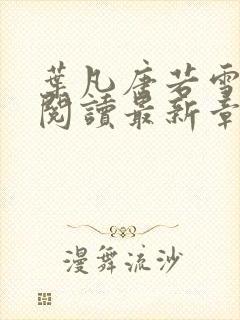 葉凡唐若雪
閱讀最新章
漫舞流沙